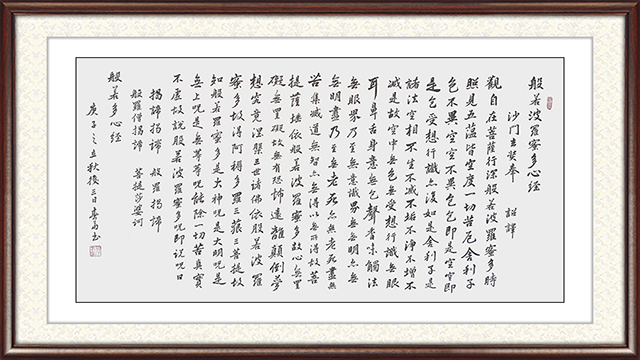 般若波羅蜜多心經
沙門玄奘奉 詔譯
觀自在菩薩行深般若波羅蜜多時
照見五蘊皆空度一切苦厄舍利子
色不異空空不異色色即是空空即
是色受想行識亦復如是舍利子是
諸法空相不生不滅不垢不淨不增不
減是故空中無色無受想行識無眼
耳鼻舌身意無色聲香味觸法
無眼界乃至無意識界無無明亦無
無明盡乃至無老死亦無老死盡無
苦集滅道無智亦無得以無所得故菩
提薩埵依般若波羅蜜多故心無罣
礙無罣礙故無有恐怖遠離顛倒夢
想究竟涅槃三世諸佛依般若波羅
蜜多故得阿耨多羅三藐三菩提故
知般若波羅蜜多是大神呪是大明呪是
無上呪是無等等呪能除一切苦真實
不虛故說般若波羅蜜多呪即說呪曰
揭諦揭諦 般羅揭諦
般羅僧揭諦 菩提莎婆訶
般若多心經
庚子之立秋後三日